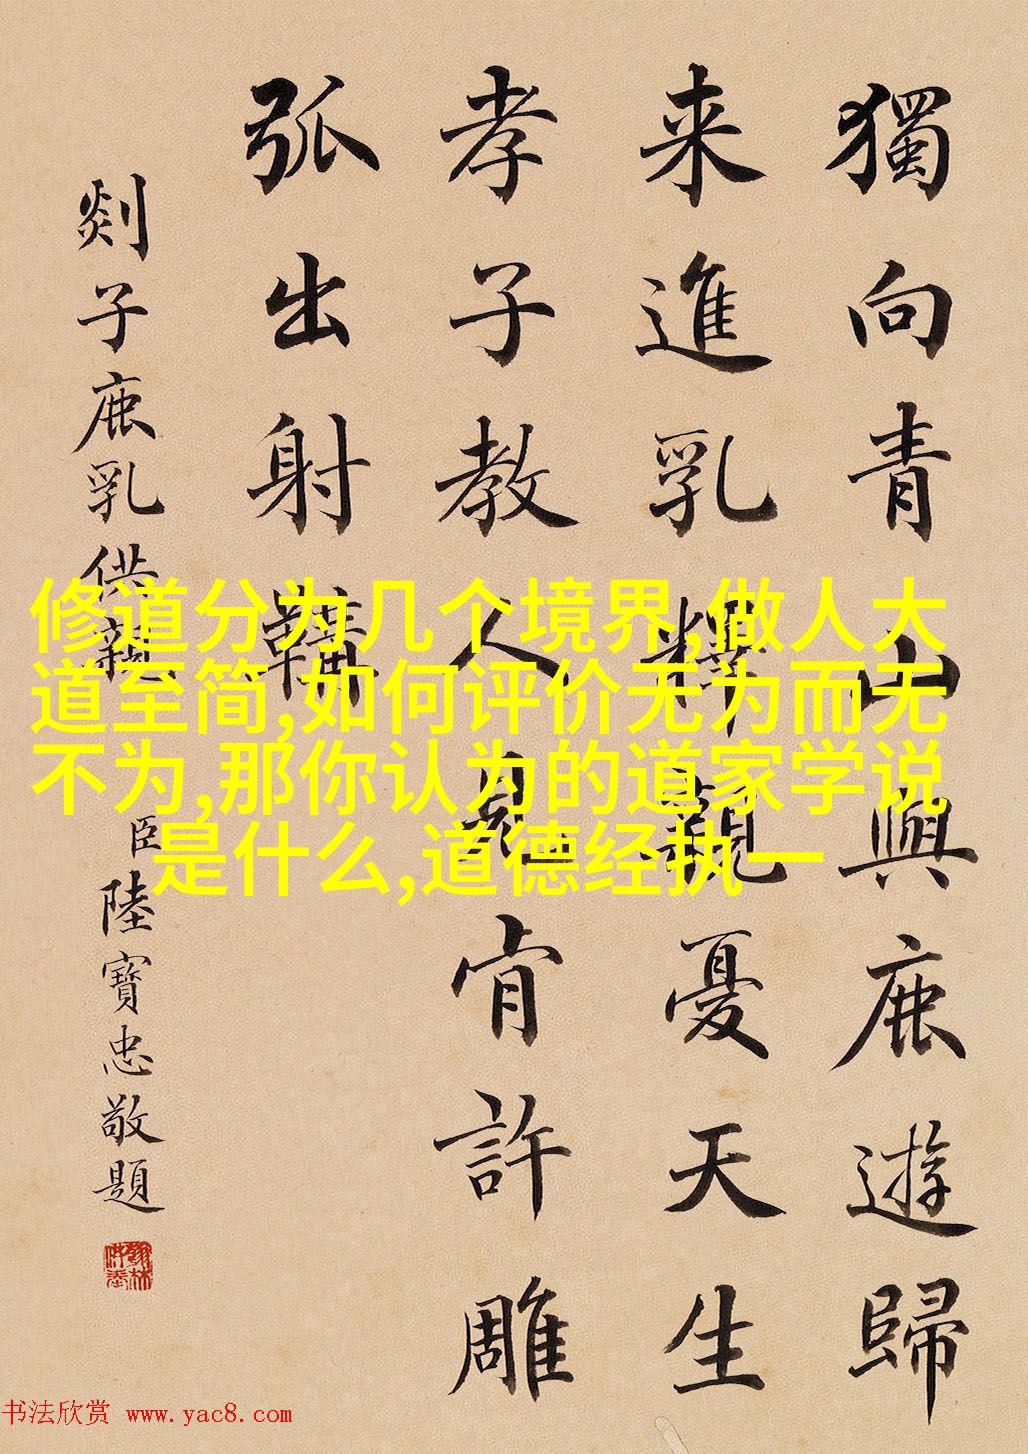 獨向青山與鹿遊歸
来進乳釋親憂天生
孝子教人見肯許雕
弧出射鞲
剡子鹿乳供親
臣陸寶忠敬題
修道分为几个境界,做人大
道至简,如何评价无为而无
不为,那你认为的道家学说
是什么,道德经执一
书法欣赏 www.yac8.com